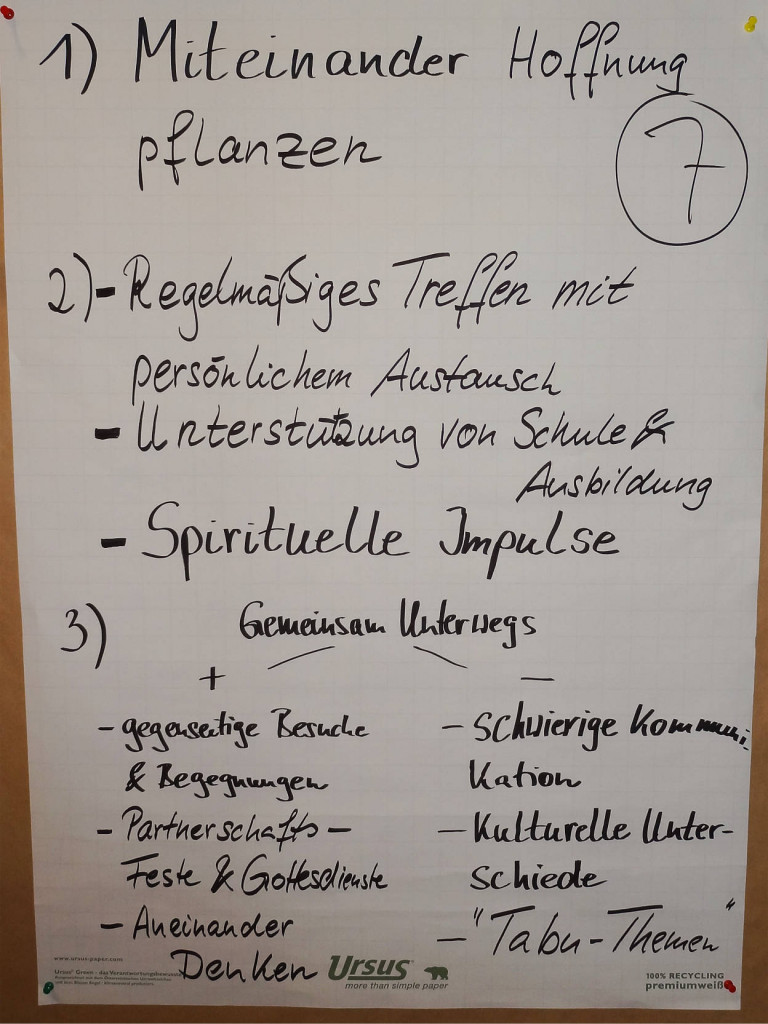 1) Miteinander Hoffnung
pflanzen
7
2) - Regelmäßiges Treffen mit
persönlichem Austausch
- Unterstützung von Schule &
Ausbildung
- Spirituelle Impulse
3) Gemeinsam Unterwegs
+ -
- gegenseitige Besuche
& Begegnungen
- Partnerschafts-
Feste & Gottesdienste
- Aneinander
Denken
- Schwierige Kommuni-
kation
- Kulturelle Unter-
schiede
- "Tabu-Themen"
www.ursus-paper.com
Ursus® Green - das Verantwortungsbewusste
Ursus®
more than simple paper
100% RECYCLING
premiumweiß